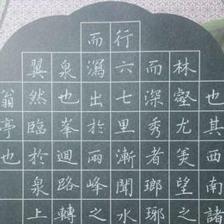 也其西南諸
林壑尤美望之
而深秀者瑯琊
行六七里漸聞水
而瀉出於兩峰之
泉也峯迴路轉
翼然臨於泉上
翁亭也